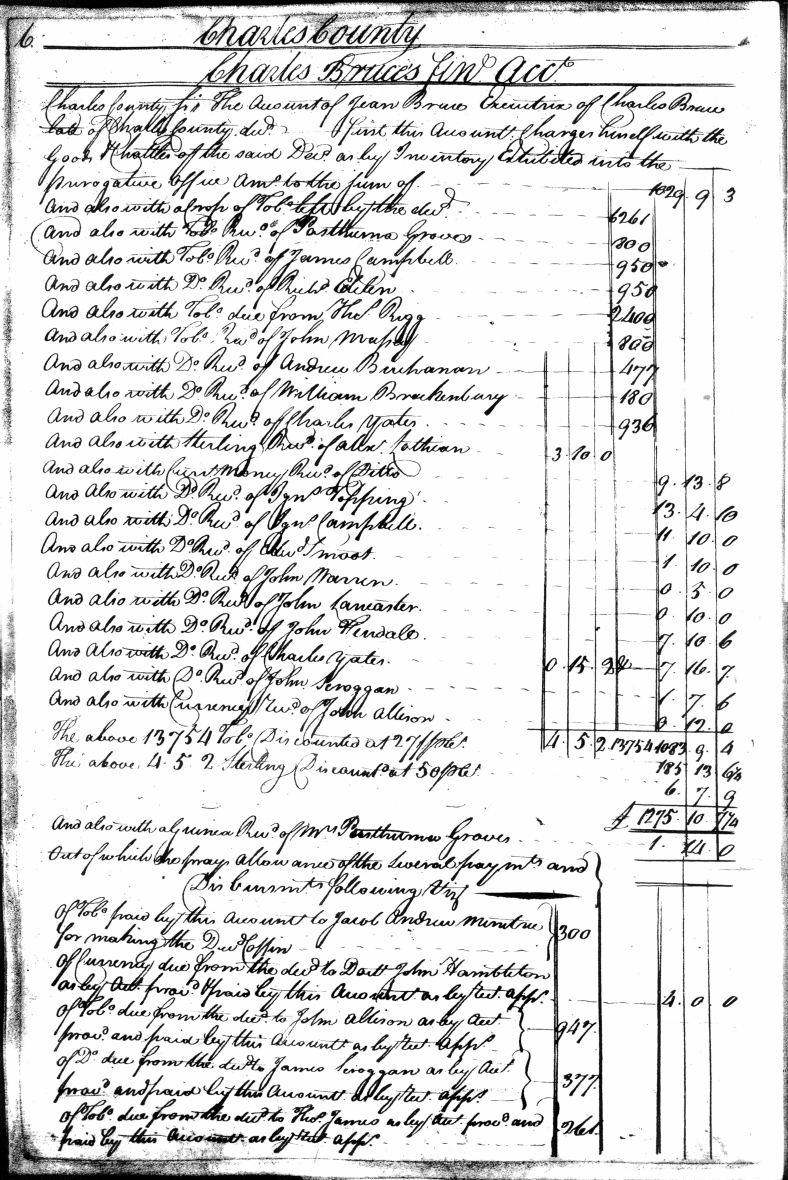 6.
Charles County
Charles Bruce's fin.l Acc.t
Charles County ss The Account of Jean Bruce Executrix of Charles Bruce
late of Charles County dec.d First this Account Charges himself with the
Goods & Chattles of the said Dec.d as by Inventory Exhibited into the
Prerogative Office Am.t to the sum of 1029. 9. 3
And also with a Crop of Tob.o left by the dec.d 6261
And also with Tob.o Rec.d of Posthuma Groves 800
And also with Tob.o Rec.d of James Campbell 950
And also with D.o Rec.d of Rich.d Edelen 950
And also with Tob.o due from Tho.s Rigg 2400
And also with Tob.o Rec.d of John Massey 800
And also with D.o Rec.d of Andrew Buchanan 477
And also with D.o Rec.d of William Brackenbury 180
And also with D.o Rec.d of Charles Yates 936
And also with Sterling Rec.d of Alex Lothean 3. 10. 0
And also with Curr.t Money Rec.d of Ditto 9. 13. 8
And Also with D.o Rec.d of Ign.s Topping 13. 4. 10
And also with D.o Rec.d of Ign.s Campbell. 11. 10. 0
And also with D.o Rec.d of Edw.d Smoot. 1. 10. 0
And also with D.o Rec.d of John Warren. 0. 5. 0
And also with D.o Rec.d of John Lancaster. 0. 10. 0
And also with D.o Rec.d of John Tendale. 7. 10. 6
And Also with D.o Rec.d of Charles Yates. 0. 15. 2 7. 16. 7
And also with D.o Rec.d of John Scroggan 1. 7. 6
And also with Currency Rec.d of John Allison 0. 12. 0
4. 5. 2 13754 1083. 9. 4
The above 13754 Tob.o Discounted at 27/ p C.t 185. 13. 6¾
The above 4. 5. 2 Sterling Discount.d at 50 p C.t 6. 7. 9
£ 1275. 10. 7¾
And also with a Guinea Rec.d of M.rs Posthuma Groves 1. 14. 0
Out of which she prays Allowance of the several paym.ts and
Disbursm.ts following Viz
Of Tob.o paid by this Account to Jacob Andrew Minitree
for making the Dec.d Coffin 300
Of Currency due from the dec.d to Doct.r John Hambleton
as by Acc.t prov.d & paid by this Account as by rec.t app.s 4. 0. 0
Of Tob.o due from the dec.d to John Allison as by Acc.t
prov.d and paid by this Account as by rec.t App.s 947.
Of D.o due from the dec.d to James Scroggan as by Acc.t
prov.d and paid by this Account as by rec.t app.s 377.
Of Tob.o due from the dec.d to Tho.s James as by Acc.t prov.d and
paid by this Account as by rec.t App.s 261.